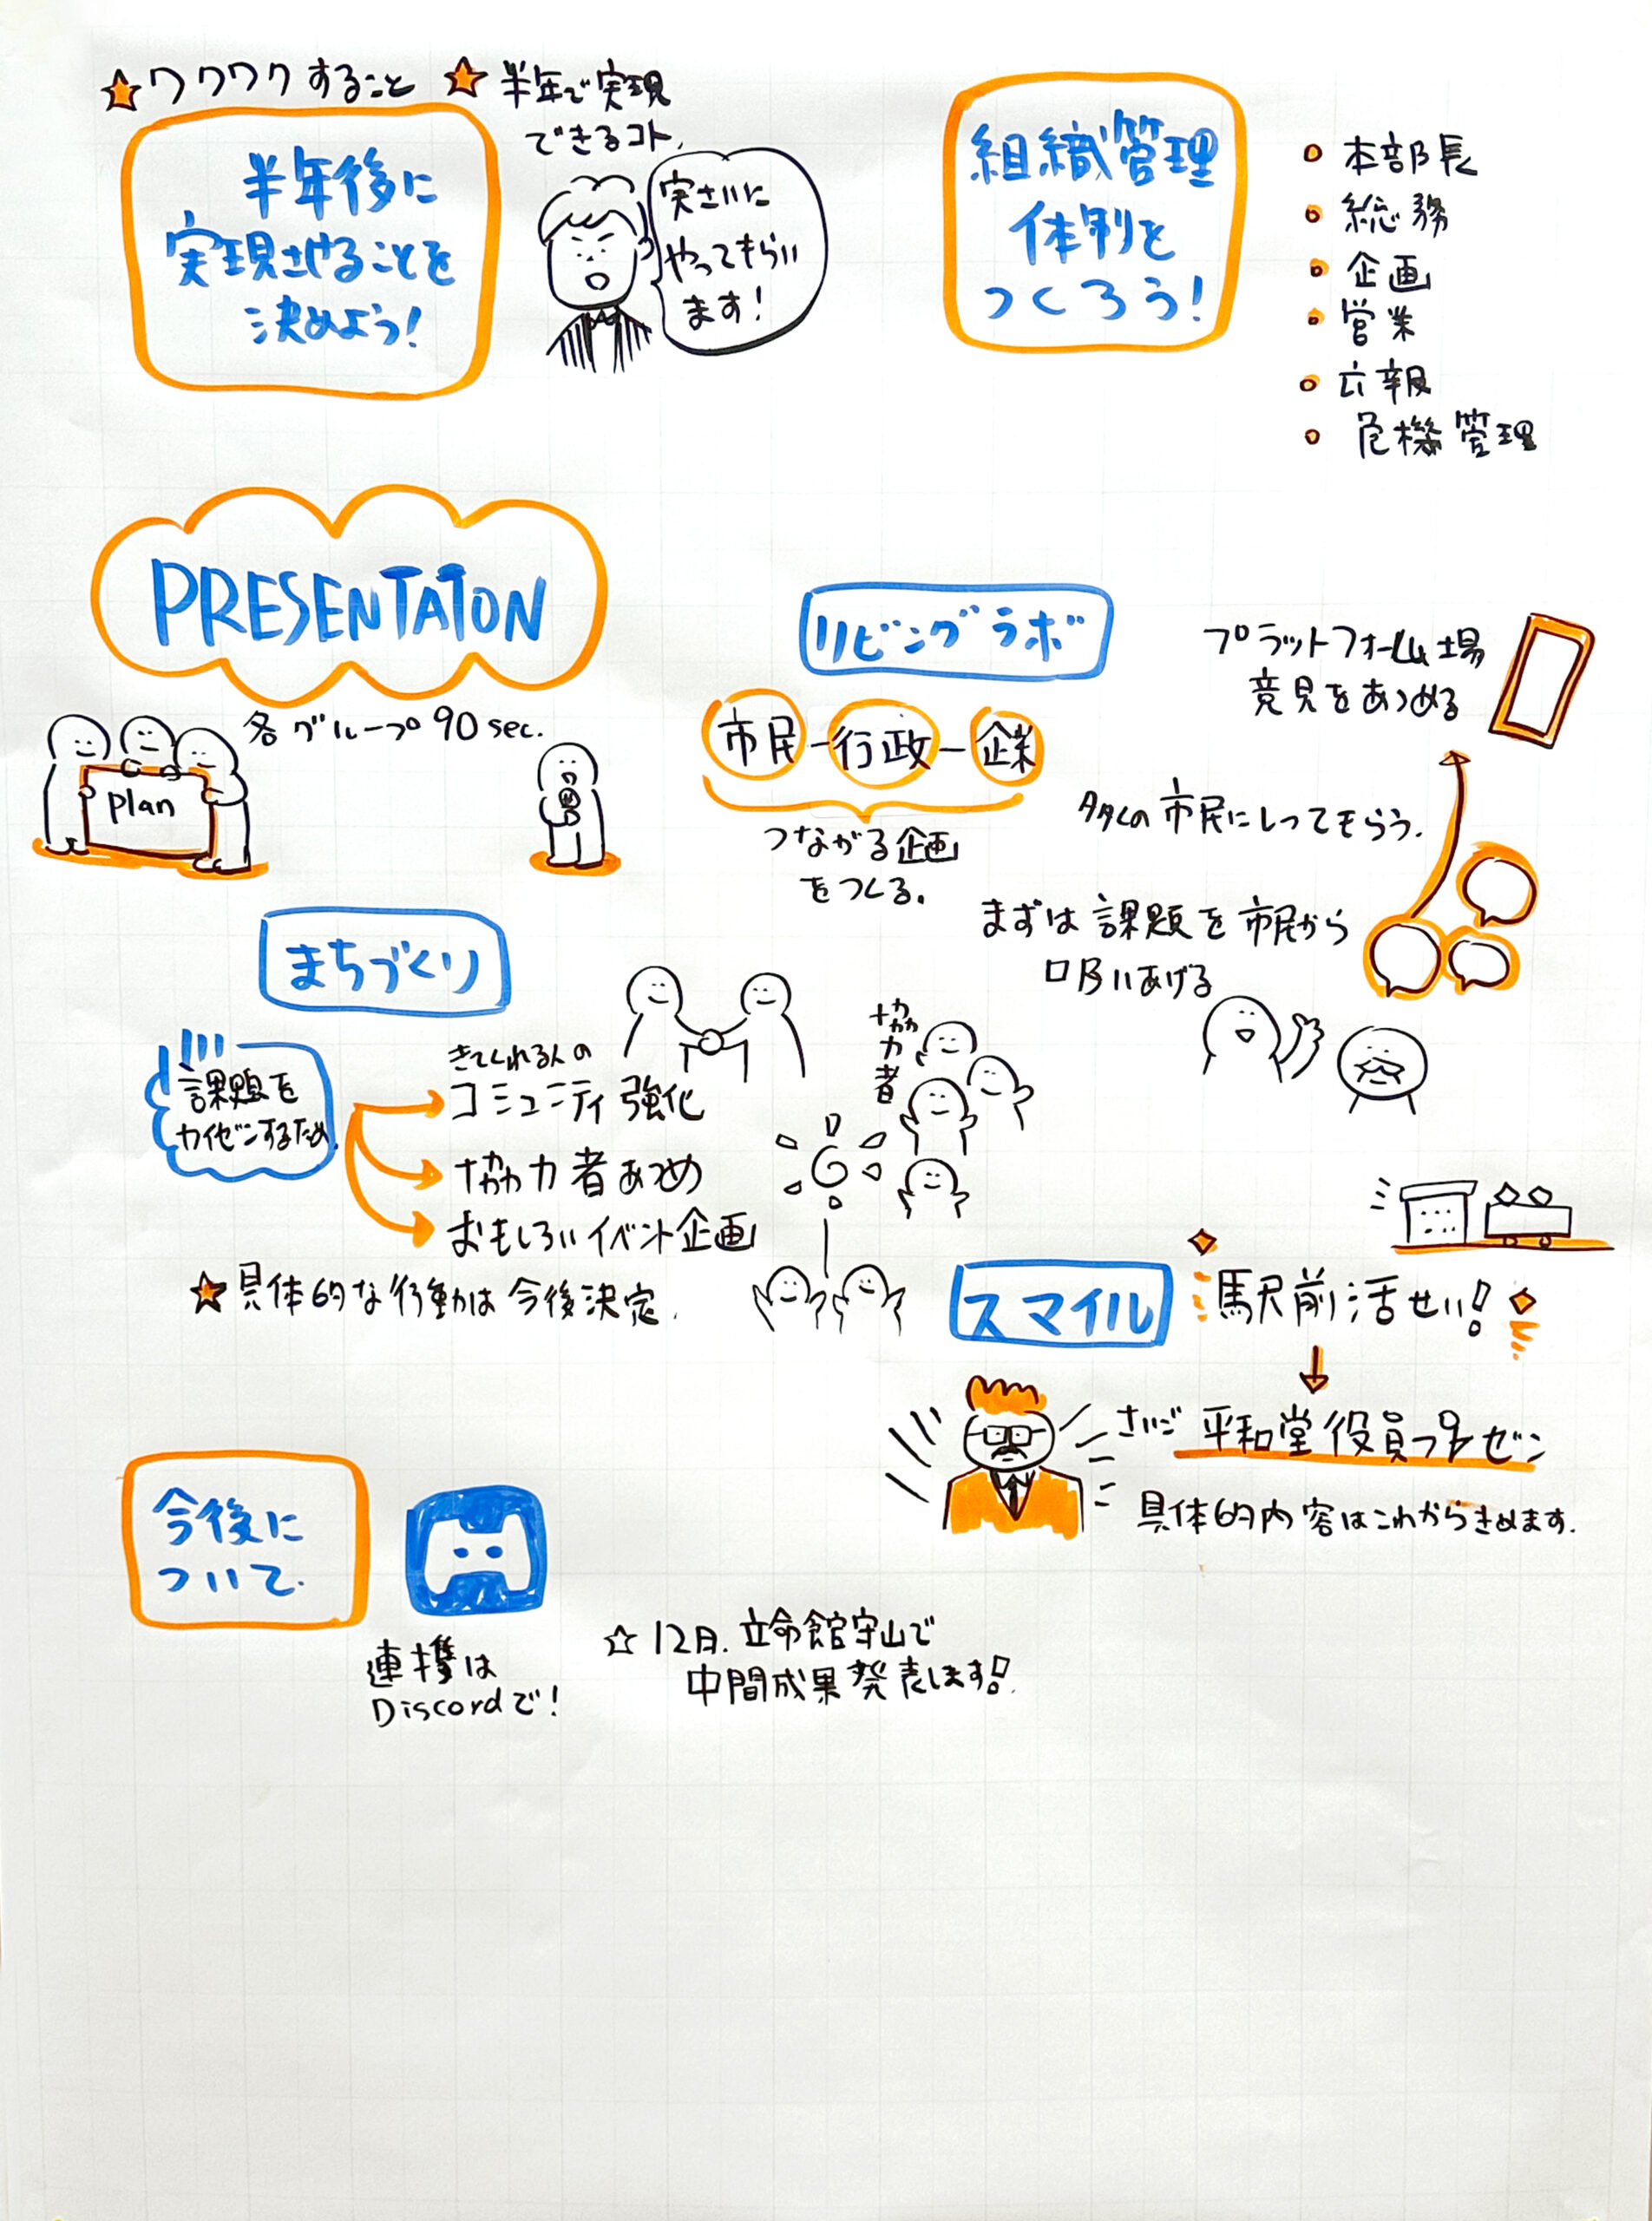 ワクワクすること
半年で実現
できるコト、
半年後に
実現させることを
決めよう!
実さいに
やってもらい
ます!
組織管理
体制を
つくろう!
本部長
総務
企画
営業
広報
危機管理
PRESENTATON
各グループ90sec.
plan
リビングラボ
市民-行政-企業
つながる企画
をつくる。
プラットフォーム場
意見をあつめる
多くの市民にしってもらう.
まずは課題を市民から
吸いあげる
まちづくり
課題を
カイゼンするため
きてくれる人の
コミュニティ強化
協力者あつめ
おもしろいイベント企画
具体的な行動は今後決定.
協力者
スマイル
駅前活せい!
さいご平和堂役員プレゼン
具体的内容はこれからきめます.
今後に
ついて.
連携は
Discordで!
☆12月.立命館守山で
中間成果発表します!